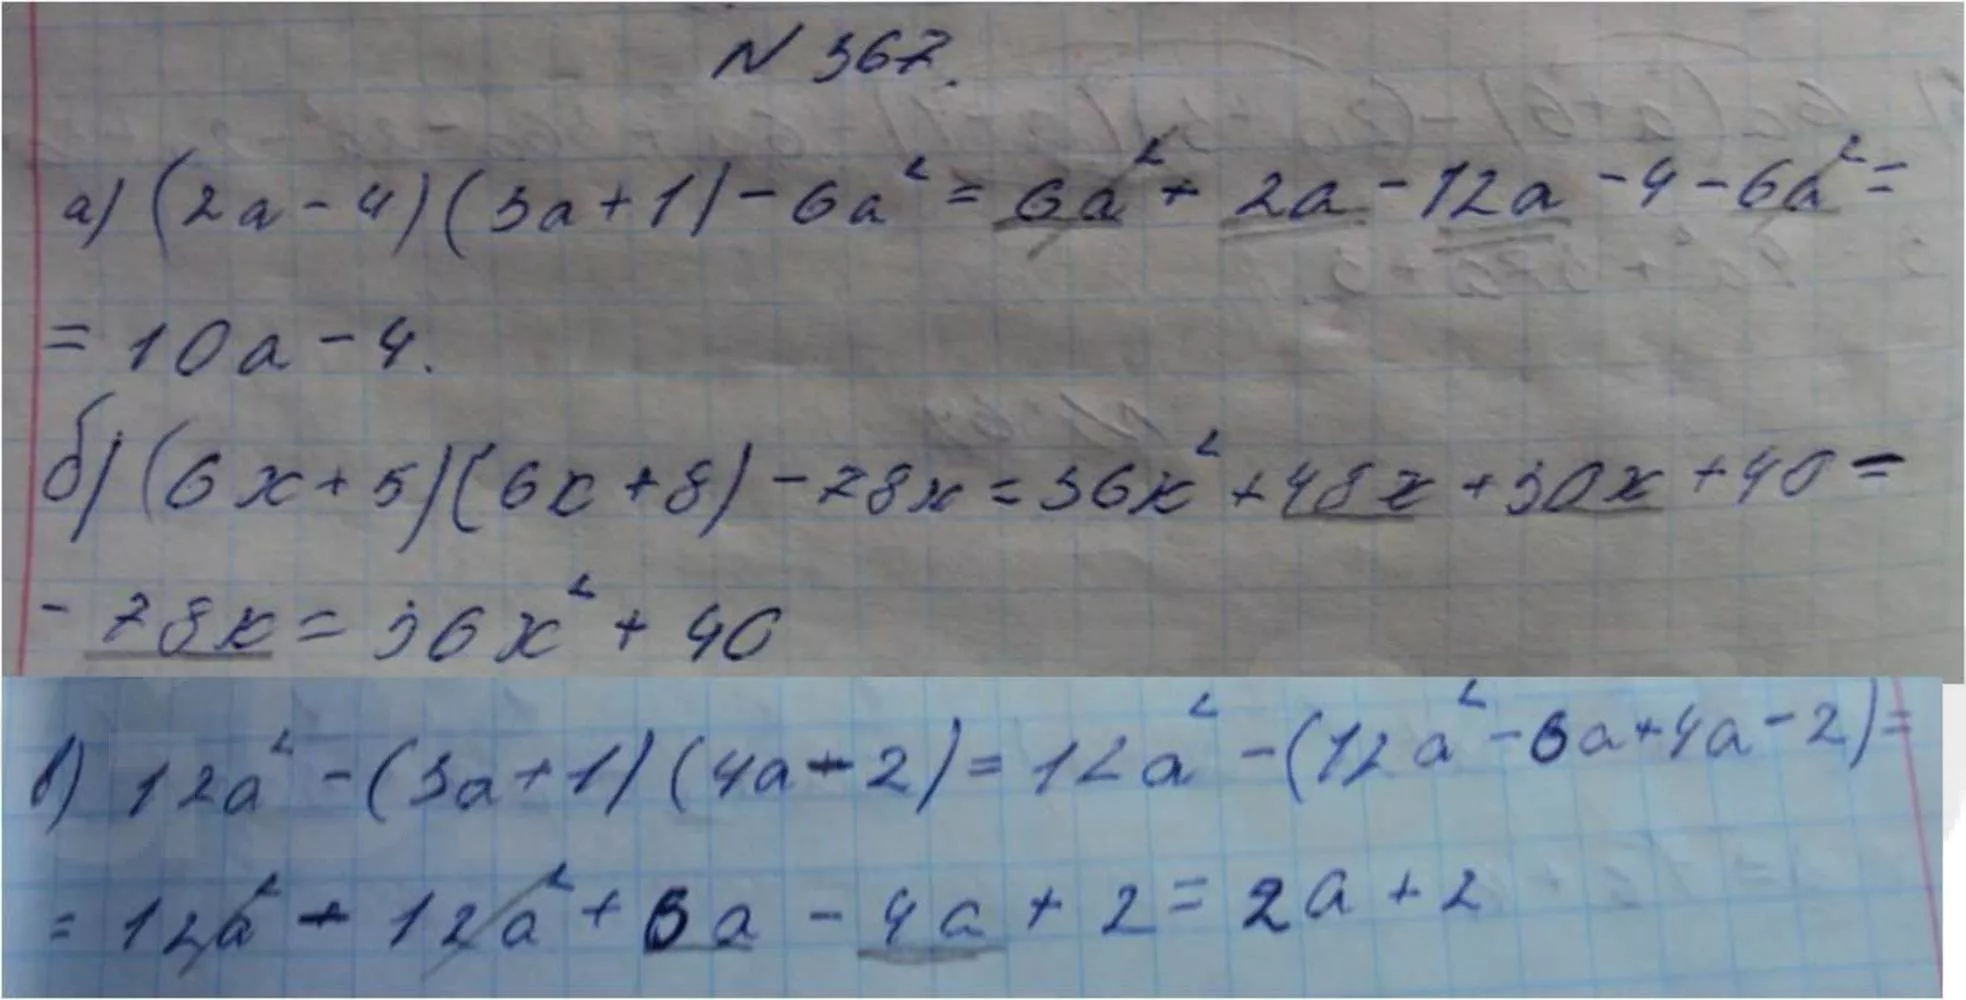 N 367.
а) (2a - 4)(3a + 1) - 6a² = 6a² + 2a - 12a - 4 - 6a² =
= 10a - 4.
б) (6x + 5)(6x + 8) - 78x = 36x² + 48x + 30x + 40 -
- 78x = 36x² + 40
в) 12a² - (3a + 1)(4a - 2) = 12a² - (12a² - 6a + 4a - 2) =
= 12a² - 12a² + 6a - 4a + 2 = 2a + 2